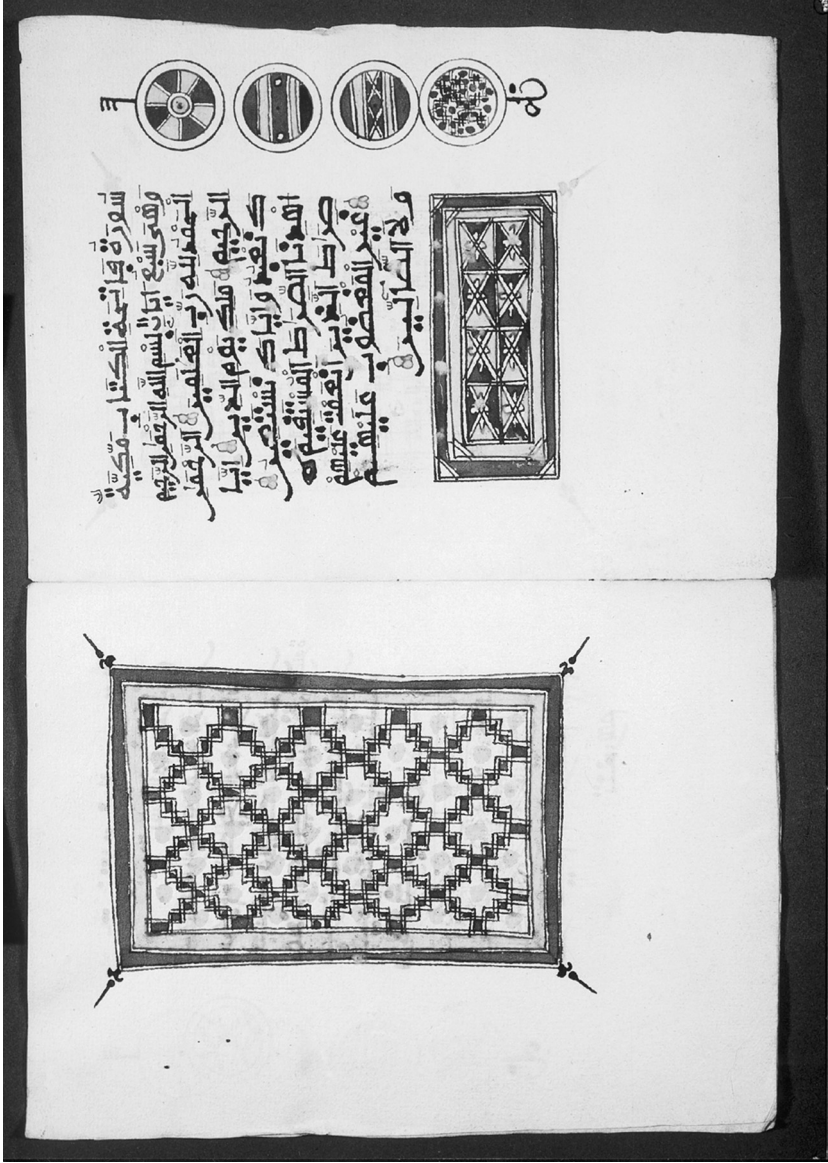 سورة فاتحة الكتاب مكية
وهي سبع ايات بسم الله الرحمن الرحيم
الحمد لله رب العلمين الرحمن
الرحيم ملك يوم الدين ايا
ك نعبد واياك نستعين
اهدنا الصراط المستقيم
صراط الذين انعمت عليهم
غير المغضوب عليهم
ولا الضالين